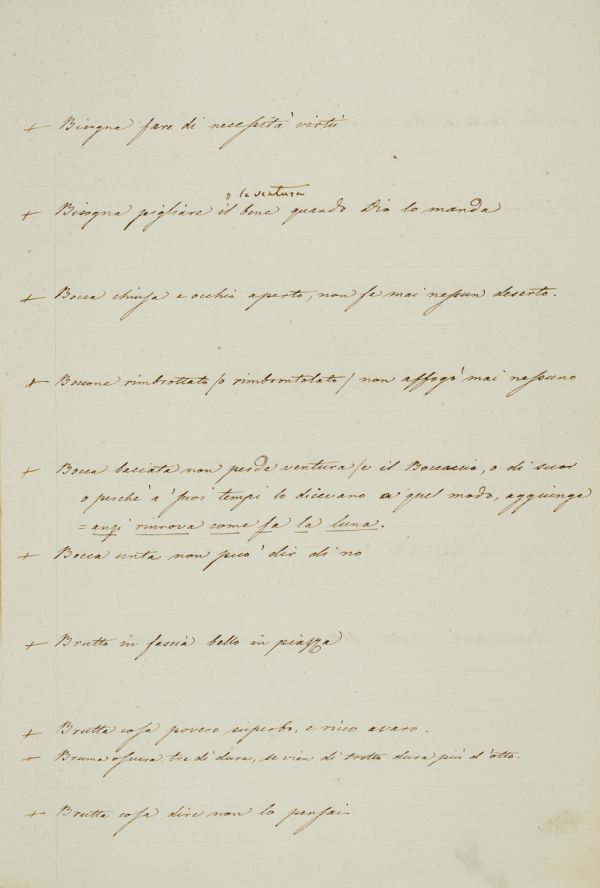 + Bisogna fare di necessità virtù
o la ventura
+ Bisogna pigliare il bene quando Dio lo manda
+ Bocca chiusa e occhio aperto, non fe mai nessun deserto.
+ Boccone rimbrottato /o rimbrontolato/ non affogò mai nessuno
+ Bocca baciata non perde ventura /e il Boccaccio, o di suo
o perchè a' suoi tempi lo dicevano a quel modo, aggiunge
= anzi rinnova come fa la luna.
+ Bocca unta non può dir di no
+ Brutto in fascia bello in piazza
+ Brutta cosa povero superbo, e ricco avaro.
+ Bruma oscura tre di dura, se vien di trotto dura più d'otto.
+ Brutta cosa dire non lo pensai